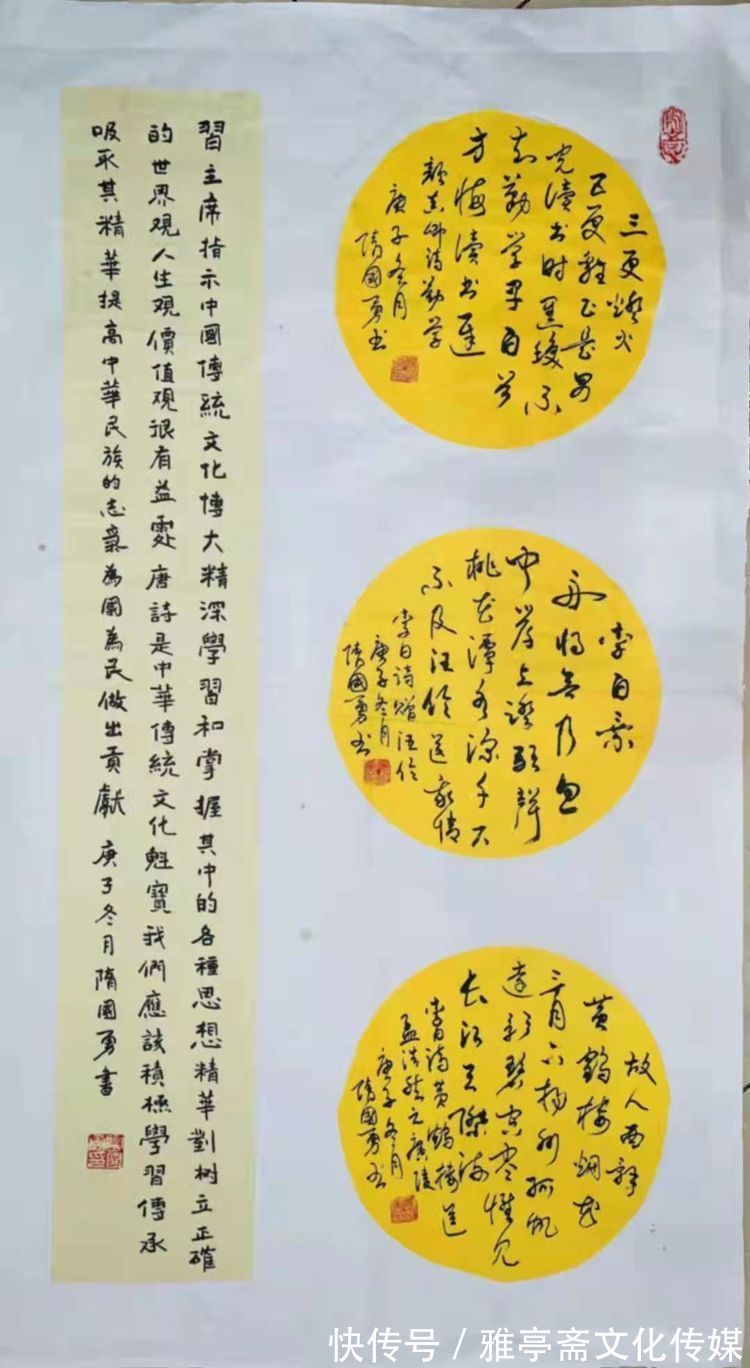 三更燈火
五更雞正是男
兒讀书時黑髮不
知勤学早白首
方悔讀书遲
顏真卿詩勤学
庚子冬月
隋國勇书
李白乘
舟将欲行忽
聞岸上踏歌聲
桃花潭水深千尺
不及汪倫送我情
李白诗贈汪倫
庚子冬月
隋國勇书
故人西辞
黄鶴楼烟花
三月下揚州孤帆
遠影碧空尽惟見
长江天際流
李白詩黄鶴楼送
孟浩然之廣陵
庚子冬月
隋國勇书
習主席指示中國傳統文化博大精深學習和掌握其中的各種思想精華對树立正確
的世界观人生观價值观很有益處唐詩是中華傳統文化魁寶我們應該積極學習傳承
吸取其精華提高中華民族的志氣為國為民做出貢獻庚子冬月隋國勇書
快传号/雅亭斋文化传媒